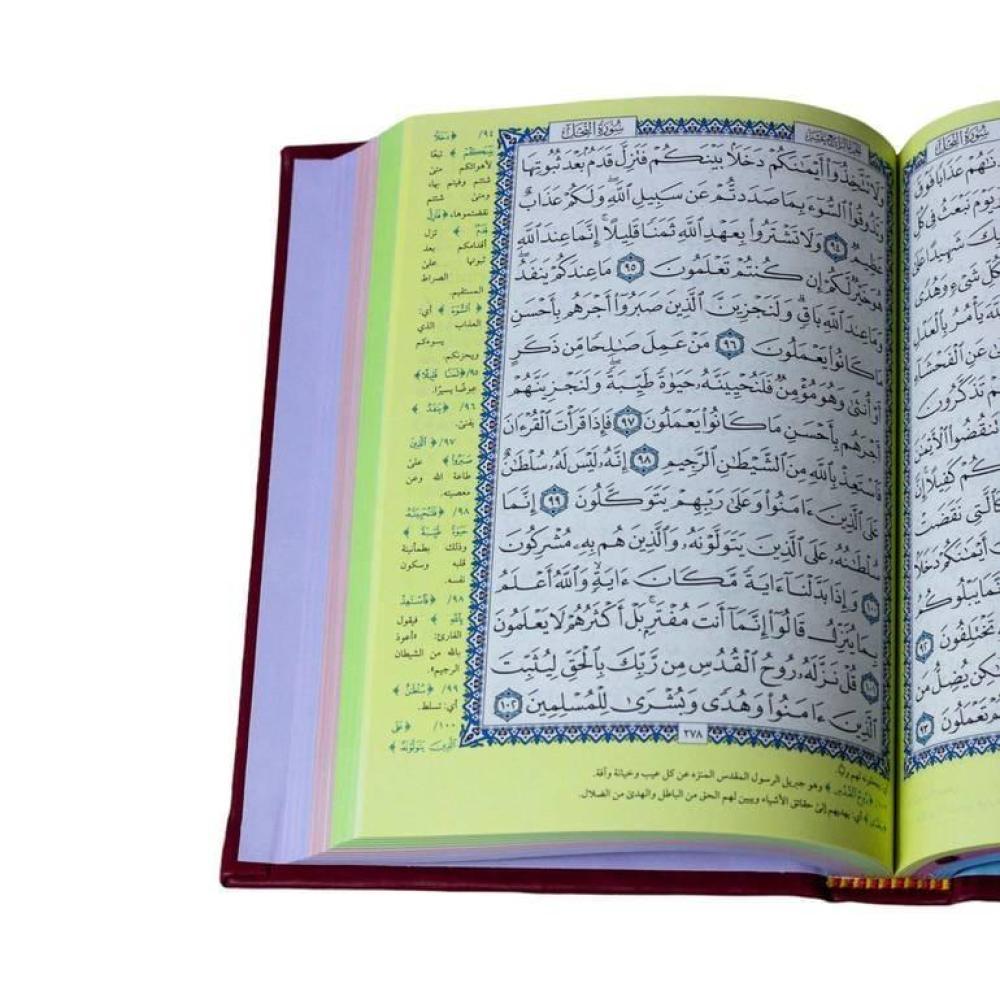 سُورَةُ النَّحْلِ
وَلَا تَتَّخِذُوٓا۟ أَيْمَٰنَكُمْ دَخَلًۢا بَيْنَكُمْ فَتَزِلَّ قَدَمٌۢ بَعْدَ ثُبُوتِهَا
وَتَذُوقُوا۟ ٱلسُّوٓءَ بِمَا صَدَدتُّمْ عَن سَبِيلِ ٱللَّهِ وَلَكُمْ عَذَابٌ
عَظِيمٌ ٩٤ وَلَا تَشْتَرُوا۟ بِعَهْدِ ٱللَّهِ ثَمَنًا قَلِيلًا إِنَّمَا عِندَ ٱللَّهِ
هُوَ خَيْرٌ لَّكُمْ إِن كُنتُمْ تَعْلَمُونَ ٩٥ مَا عِندَكُمْ يَنفَدُ
وَمَا عِندَ ٱللَّهِ بَاقٍ وَلَنَجْزِيَنَّ ٱلَّذِينَ صَبَرُوٓا۟ أَجْرَهُم بِأَحْسَنِ
مَا كَانُوا۟ يَعْمَلُونَ ٩٦ مَنْ عَمِلَ صَٰلِحًا مِّن ذَكَرٍ
أَوْ أُنثَىٰ وَهُوَ مُؤْمِنٌ فَلَنُحْيِيَنَّهُۥ حَيَوٰةً طَيِّبَةً وَلَنَجْزِيَنَّهُمْ
أَجْرَهُم بِأَحْسَنِ مَا كَانُوا۟ يَعْمَلُونَ ٩٧ فَإِذَا قَرَأْتَ ٱلْقُرْءَانَ
فَٱسْتَعِذْ بِٱللَّهِ مِنَ ٱلشَّيْطَٰنِ ٱلرَّجِيمِ ٩٨ إِنَّهُۥ لَيْسَ لَهُۥ سُلْطَٰنٌ
عَلَى ٱلَّذِينَ ءَامَنُوا۟ وَعَلَىٰ رَبِّهِمْ يَتَوَكَّلُونَ ٩٩ إِنَّمَا
سُلْطَٰنُهُۥ عَلَى ٱلَّذِينَ يَتَوَلَّوْنَهُۥ وَٱلَّذِينَ هُم بِهِۦ مُشْرِكُونَ
١٠٠ وَإِذَا بَدَّلْنَآ ءَايَةً مَّكَانَ ءَايَةٍ وَٱللَّهُ أَعْلَمُ
بِمَا يُنَزِّلُ قَالُوٓا۟ إِنَّمَآ أَنتَ مُفْتَرٍۭ بَلْ أَكْثَرُهُمْ لَا يَعْلَمُونَ
١٠١ قُلْ نَزَّلَهُۥ رُوحُ ٱلْقُدُسِ مِن رَّبِّكَ بِٱلْحَقِّ لِيُثَبِّتَ
ٱلَّذِينَ ءَامَنُوا۟ وَهُدًى وَبُشْرَىٰ لِلْمُسْلِمِينَ ١٠٢
٢٧٨
٩٤/ ﴿دَخَلًا
بَيْنَكُمْ﴾ تبعًا
لأهوائكم متى
شئتم وفيتم بها،
ومتى شئتم
نقضتموها، ﴿فَتَزِلَّ
قَدَمٌ﴾ تزل
أقدامكم بعد
ثبوتها على
الصراط
المستقيم.
﴿السُّوءَ﴾ أي:
العذاب الذي
يسوءكم
ويحزنكم.
٩٥/ ﴿ثَمَنًا قَلِيلًا﴾
عوضًا يسيرًا.
٩٦/ ﴿يَنفَدُ﴾
يفنى.
٩٧/ ﴿الَّذِينَ
صَبَرُوا﴾ على
طاعة الله وعن
معصيته.
٩٨/ ﴿فَلَنُحْيِيَنَّهُ
حَيَوٰةً طَيِّبَةً﴾
وذلك بطمأنينة
قلبه وسكون
نفسه.
٩٨/ ﴿فَاسْتَعِذْ
بِاللَّهِ﴾ فيقول
القارئ: «أعوذ
بالله من الشيطان
الرجيم».
٩٩/ ﴿سُلْطَٰنٌ﴾
أي: تسلط.
١٠٠/ ﴿عَلَى
الَّذِينَ يَتَوَلَّوْنَهُ﴾
﴿رُوحُ الْقُدُسِ﴾ وهو جبريل الرسول المقدس المنزه عن كل عيب وخيانة وآفة.
أي: يهديهم إلى حقائق الأشياء ويبين لهم الحق من الباطل والهدى من الضلال.
سُورَةُ النَّحْلِ
عَذَابًا فَوْقَ
يَوْمَ نَبْعَثُ فِى كُلِّ
شَهِيدًا عَلَىٰ
شَىْءٍ وَهُدًى
يَأْمُرُ بِٱلْعَدْلِ
عَنِ ٱلْفَحْشَآءِ
تَذَكَّرُونَ
تَنقُضُوا۟ ٱلْأَيْمَٰنَ
كَفِيلًا إِنَّ
كَٱلَّتِى نَقَضَتْ
أَيْمَٰنَكُمْ دَخَلًۢا
يَبْلُوكُمُ
تَخْتَلِفُونَ ٩٢
يُضِلُّ مَن
تَعْمَلُونَ ٩٣